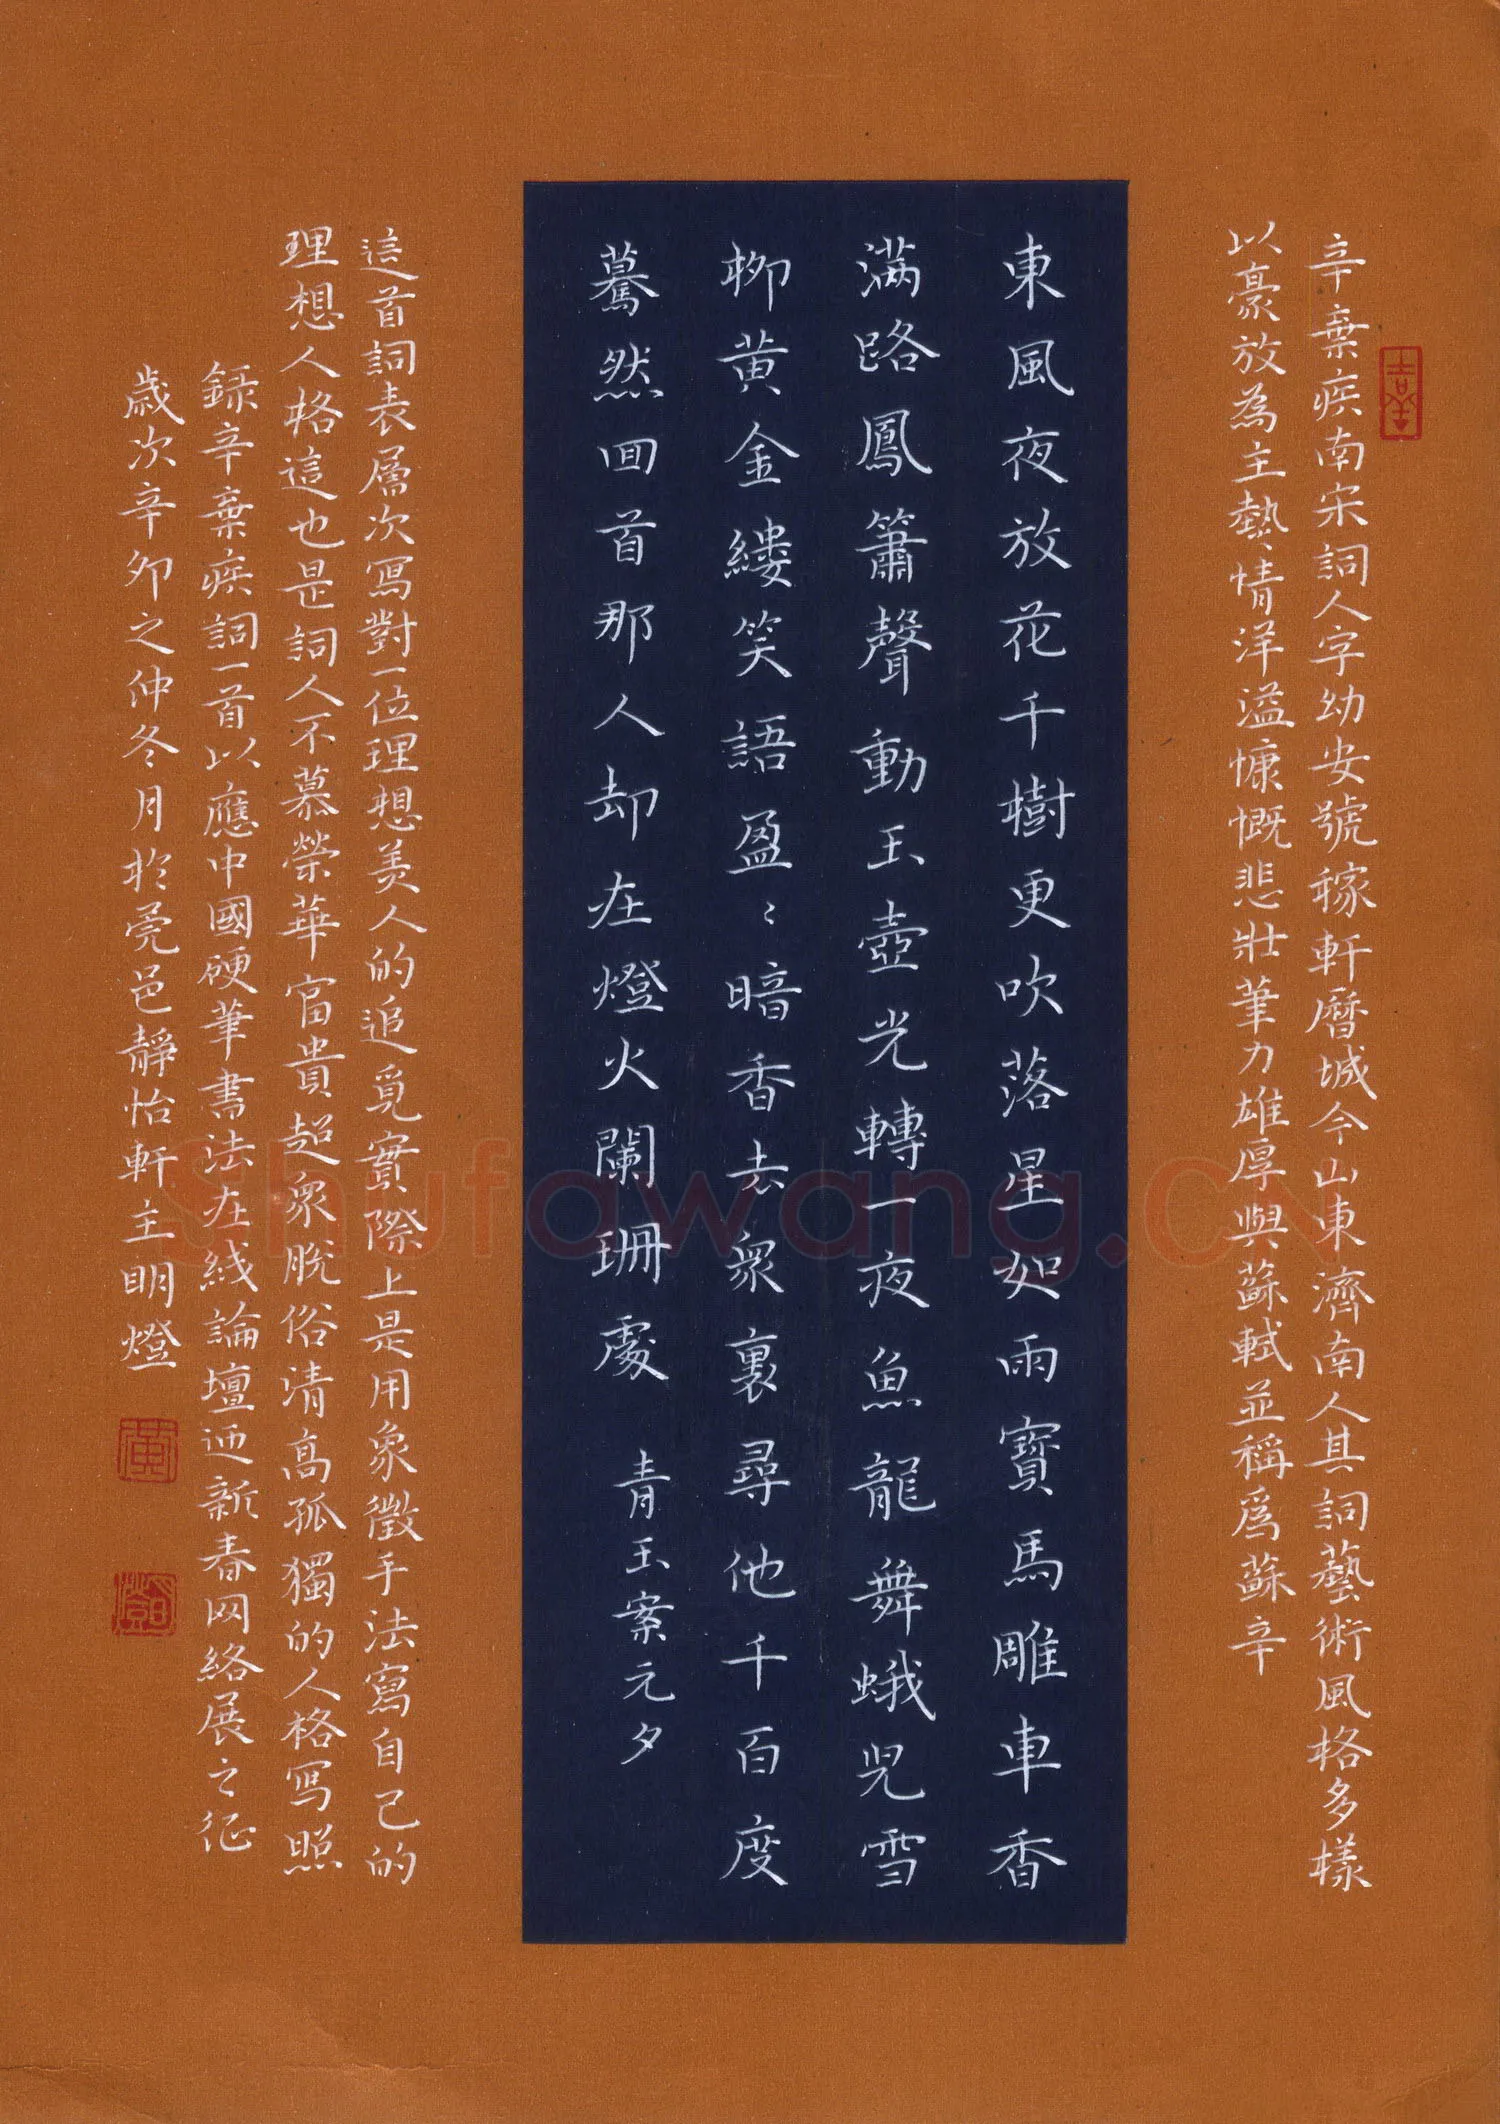 辛棄疾南宋詞人字幼安號稼軒曆城今山東濟南人其詞藝術風格多樣
以豪放為主熱情洋溢慷慨悲壯筆力雄厚與蘇軾並稱爲蘇辛
東風夜放花千樹更吹落星如雨寶馬雕車香
滿路鳳簫聲動玉壺光轉一夜魚龍舞蛾兒雪
柳黄金縷笑語盈〻暗香去衆裏尋他千百度
驀然回首那人却在燈火闌珊處
青玉案元夕
這首詞表層次寫對一位理想美人的追覓實際上是用象徵手法寫自己的
理想人格這也是詞人不慕榮華富貴超衆脫俗清高孤獨的人格写照
録辛棄疾詞一首以應中國硬筆書法在线論壇迎新春网络展之征
歲次辛卯之仲冬月於亳邑靜怡軒主明燈
黄
Shufawang.CN